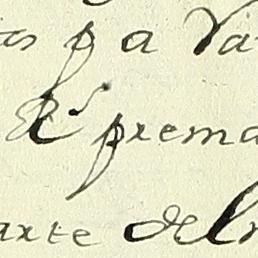 os p a Va
R.l prema
arte del